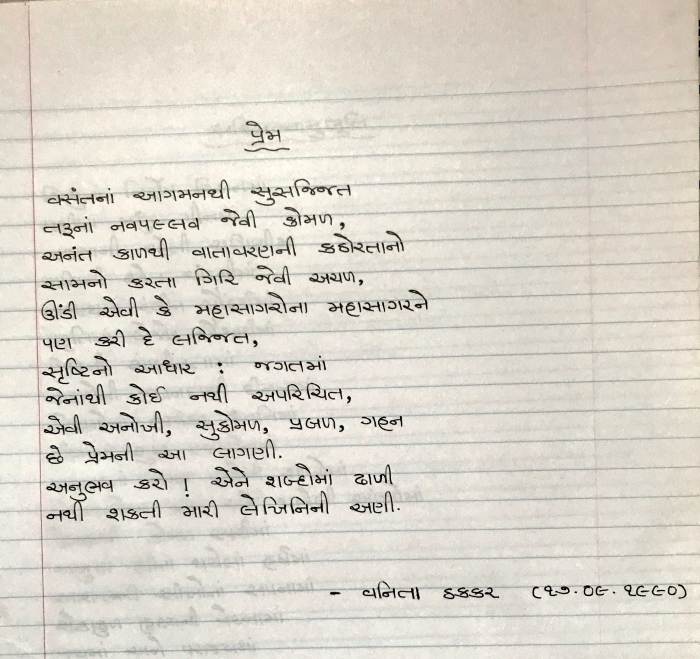 પ્રેમ
વસંતનાં આગમનથી સુસજ્જિત
તરૂનાં નવપલ્લવ જેવી કોમળ,
અનંત કાળથી વાતાવરણની કઠોરતાનો
સામનો કરતા ગિરિ જેવી અચળ,
ઊંડી એવી કે મહાસાગરોના મહાસાગરને
પણ કરી દે લજ્જિત,
સૃષ્ટિનો આધાર : જગતમાં
જેનાંથી કોઈ નથી અપરિચિત,
એવી અનોખી, સુકોમળ, પ્રબળ, ગહન
છે પ્રેમની આ લાગણી.
અનુભવ કરો ! એને શબ્દોમાં ઢાળી
નથી શકતી મારી લેખિનિની અણી.
- વનિતા ઠક્કર (૧૭.૦૯.૧૯૯૦)